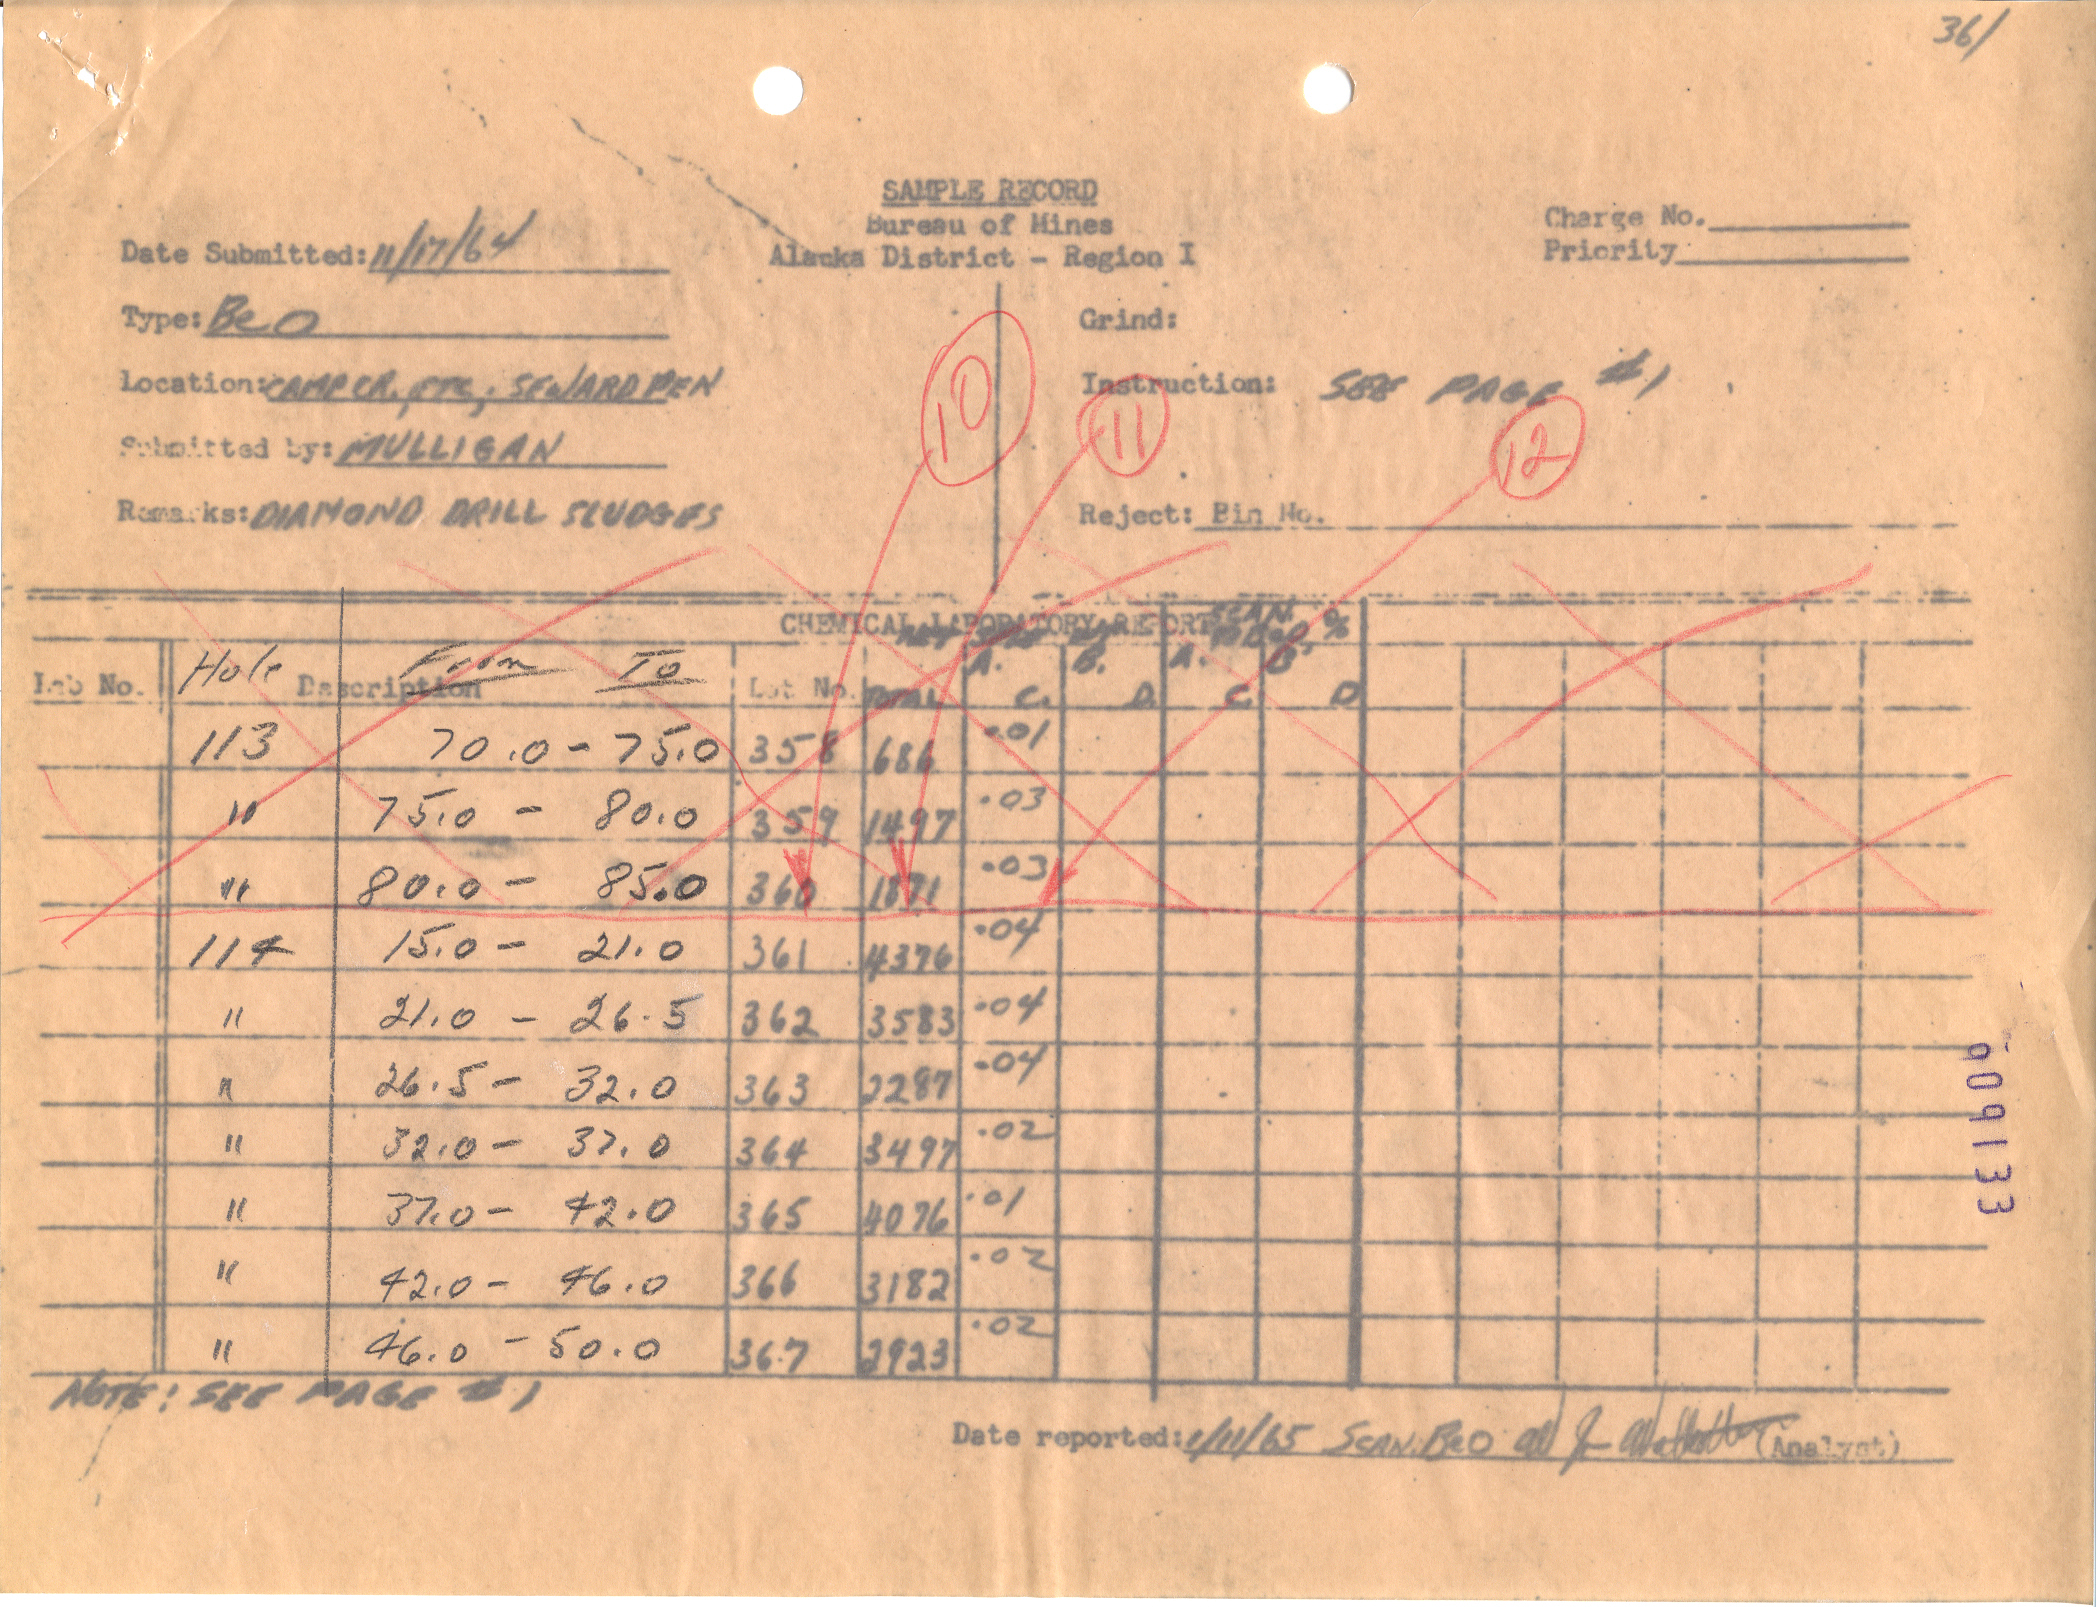 36/
SAMPLE RECORD
Bureau of Mines
Alaska District - Region I
Charge No.
Priority
Date Submitted: 11/17/64
Type: BeO
Location: CAMP CR. ETC; SEWARD PEN
Submitted by: MULLIGAN
Remarks: DIAMOND DRILL SLUDGES
Grind:
Instruction: SEE PAGE #1
Reject: Bin No.
10
11
12
CHEMICAL LABORATORY REPORT
SCAN. % BeO
Lab No. Hole Description From To Lot No. TOTAL A. C. B. D. A. C. B. D
113 70.0 - 75.0 358 686 .01
" 75.0 - 80.0 359 1497 .03
" 80.0 - 85.0 360 1871 .03
114 15.0 - 21.0 361 4376 .04
" 21.0 - 26.5 362 3583 .04
" 26.5 - 32.0 363 2287 .04
" 32.0 - 37.0 364 3497 .02
" 37.0 - 42.0 365 4076 .01
" 42.0 - 46.0 366 3182 .02
" 46.0 - 50.0 367 2923 .02
NOTE: SEE PAGE #1
Date reported: 1/11/65 SCAN. BeO (Analyst)
009133